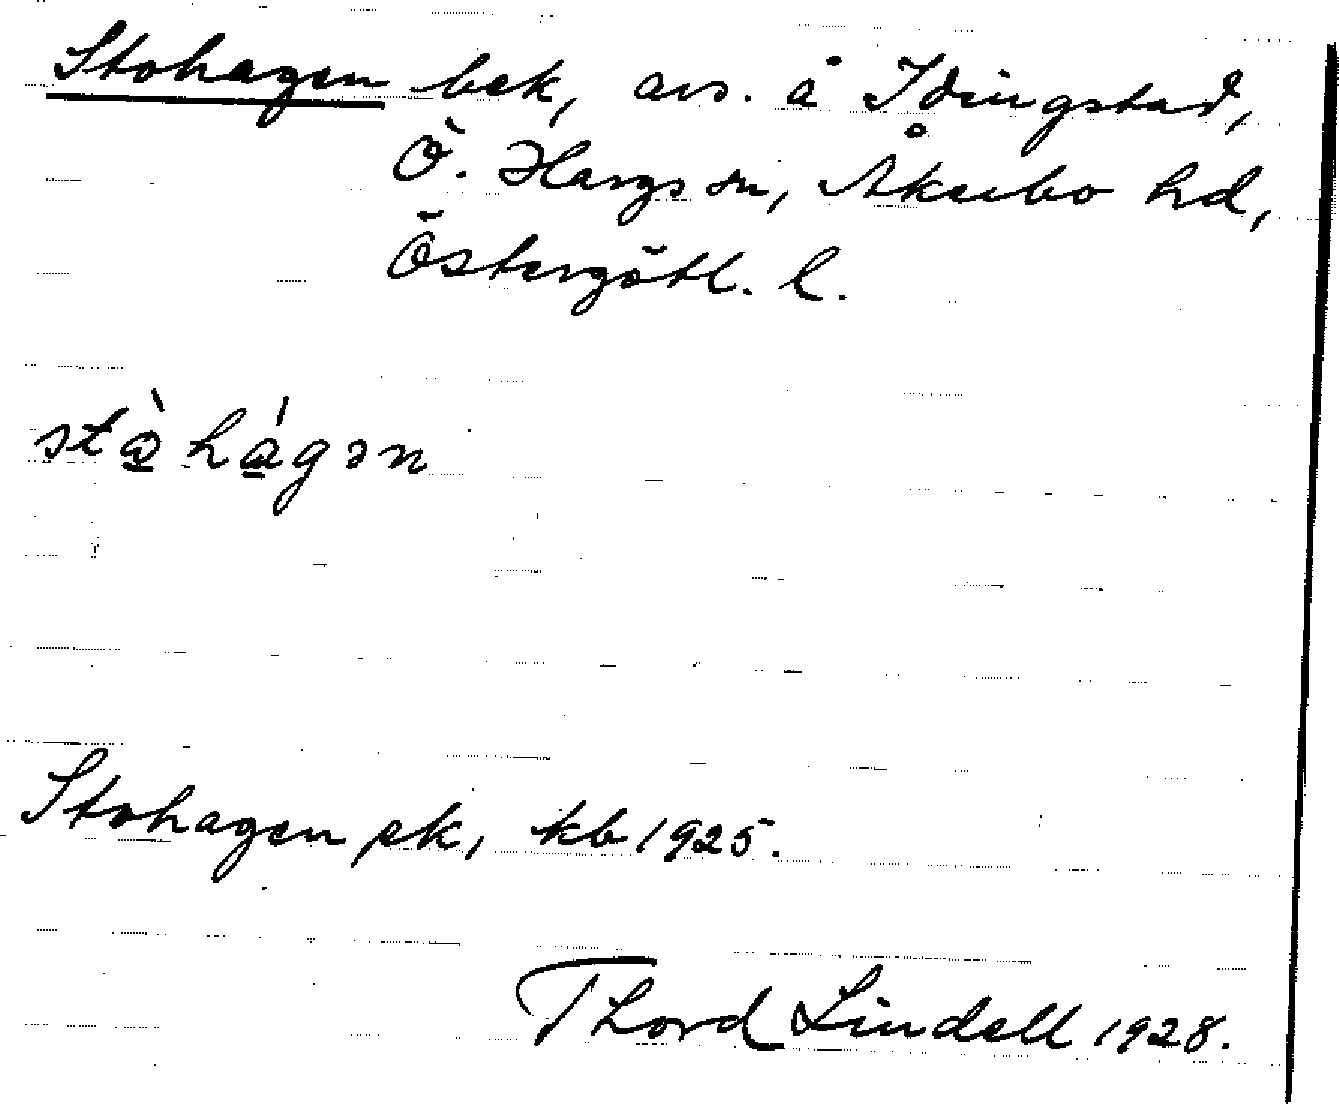 Stohagen bek, avs. å Idingstad,
Ö. Hargs sn, Åkerbo hd,
Östergötl. l.
Stohagen ek, kb 1925.
Thord Lindell 1928.